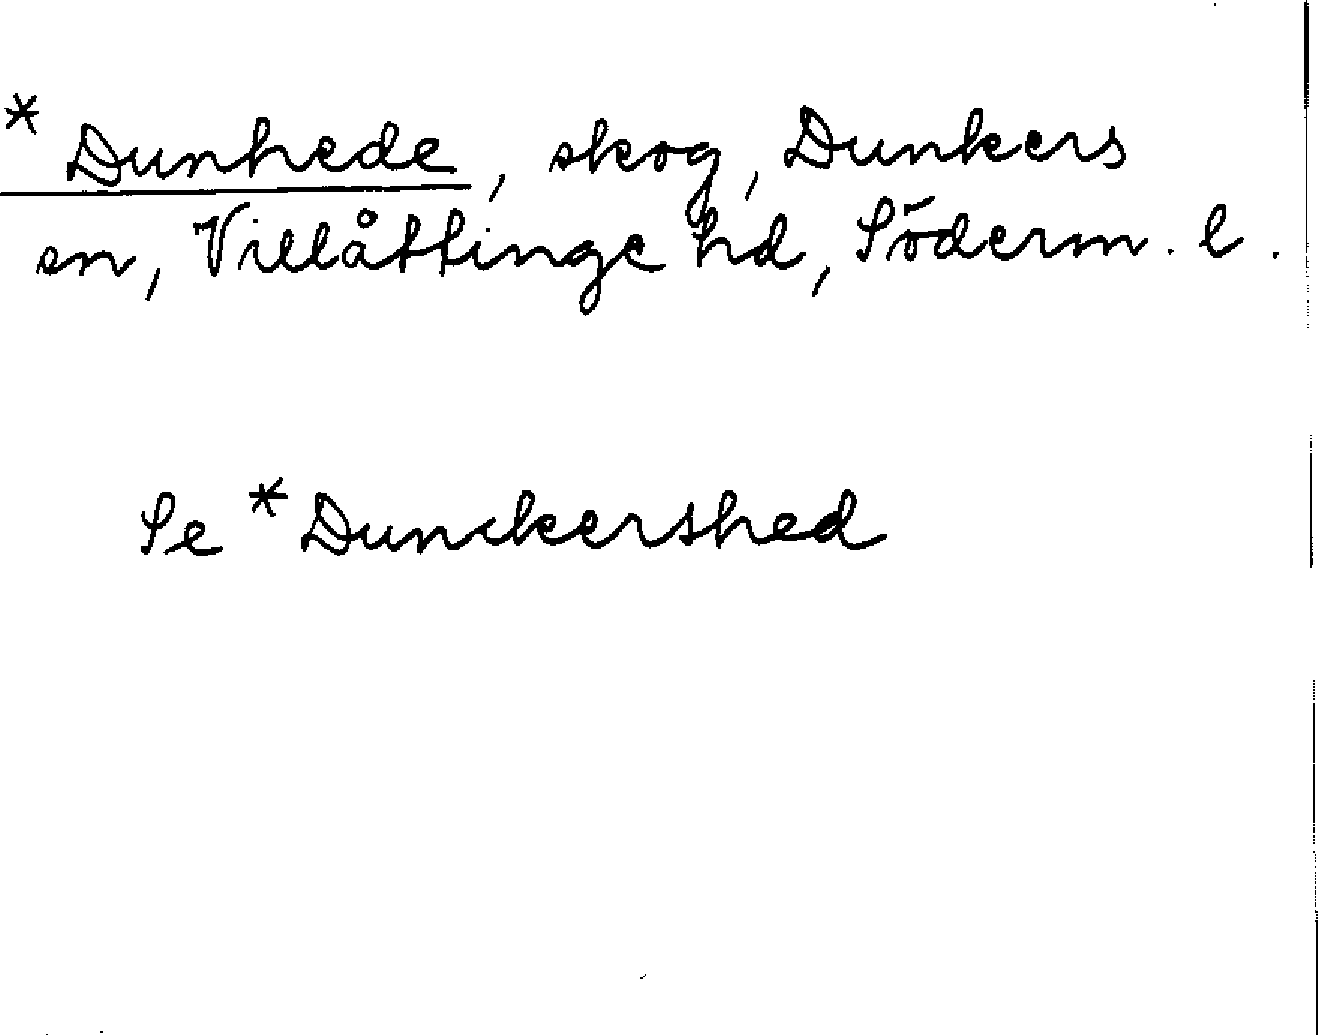 * Dunhede, skog, Dunkers
sn, Villåttinge hd, Söderm. l.
Se * Dunckershed